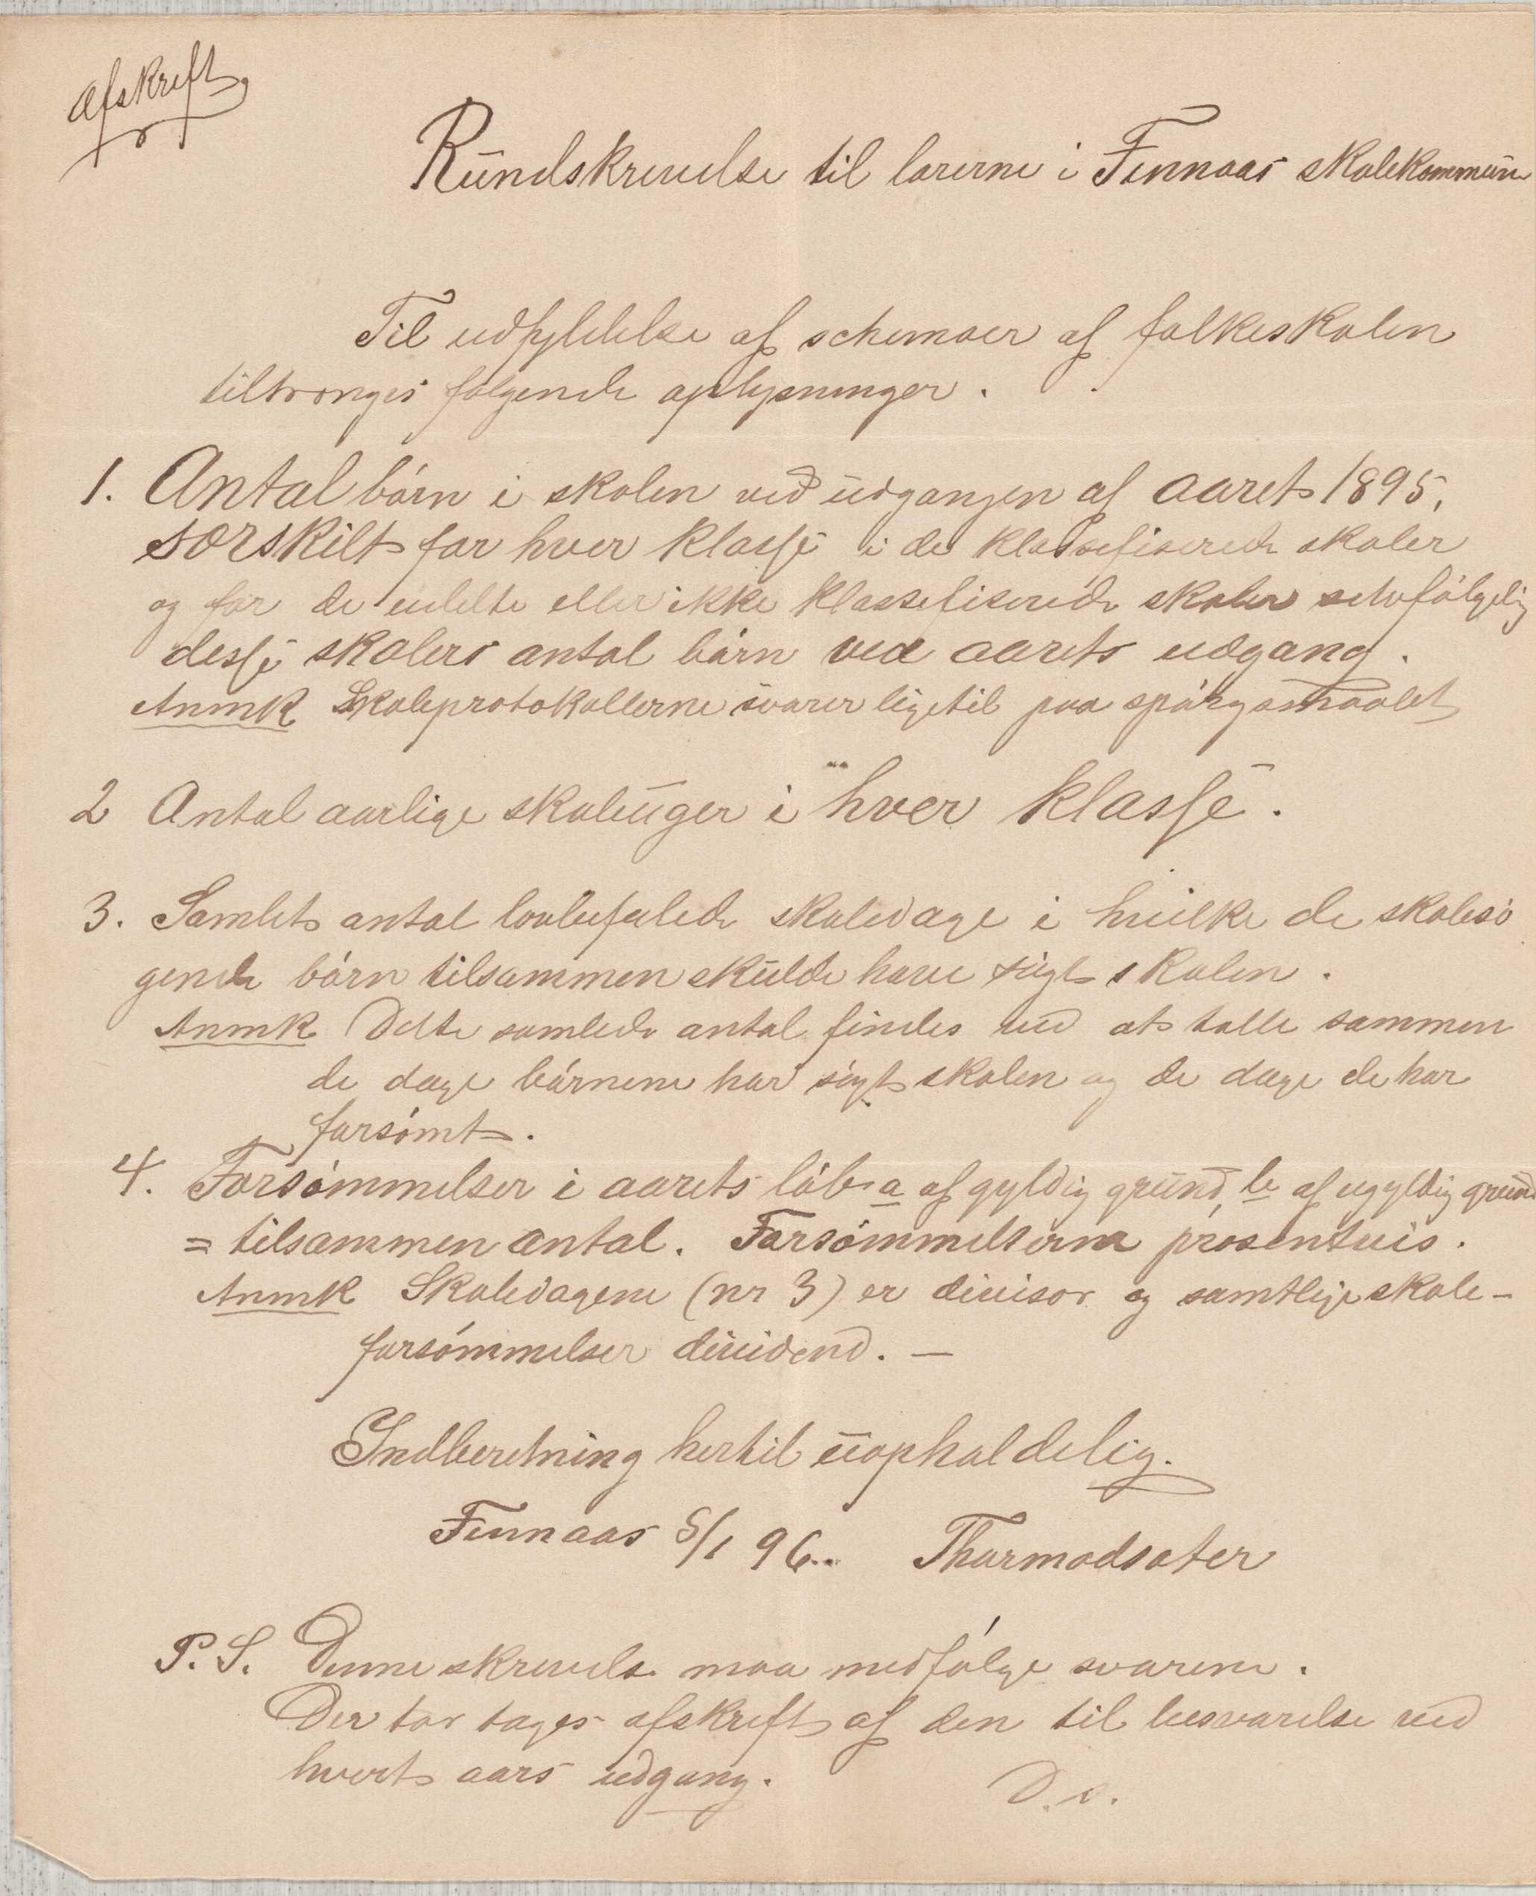 Afskreft
Rundskrivelse til lærerne i Finnaas skolekommune
Til udfyldelse af schemaer af folkeskolen
tiltrænges følgende oplysninger.
1. Antal børn i skolen ved udgangen af aaret 1895,
særskilt for hver klasse i de klassefiserede skoler
og for de udelte eller ikke klassefiserede skoler selvfølgelig
desse skolers antal børn ved aarets udgang.
Anmk Skoleprotokollerne svarer ligetil paa spørgsmaalet
2 Antal aarlige skoleuger i hver klasse.
3. Samlet antal lovbefalede skoledage i hvilke de skolesø
gende børn tilsammen skulde have søgt skolen.
Anmk Dette samlede antal findes ved at tælle sammen
de dage børnene har søgt skolen og de dage de har
forsømt.
4. Forsømmelser i aarets løb a af gyldig grund, b af ugyldig grund
= tilsammen antal. Forsømmelserne prosentvis.
Anmk Skoledagene (nr 3) er divisor og samtlige skole-
forsømmelser dividend. —
Indberetning hertil uopholdelig.
Finnaas 5/1 96. Thormodsæter
P. S. Denne skrivelse maa medfølge svarene.
Der bør tages afskreft af den til besvarelse ved
hvert aars udgang.
D. s.